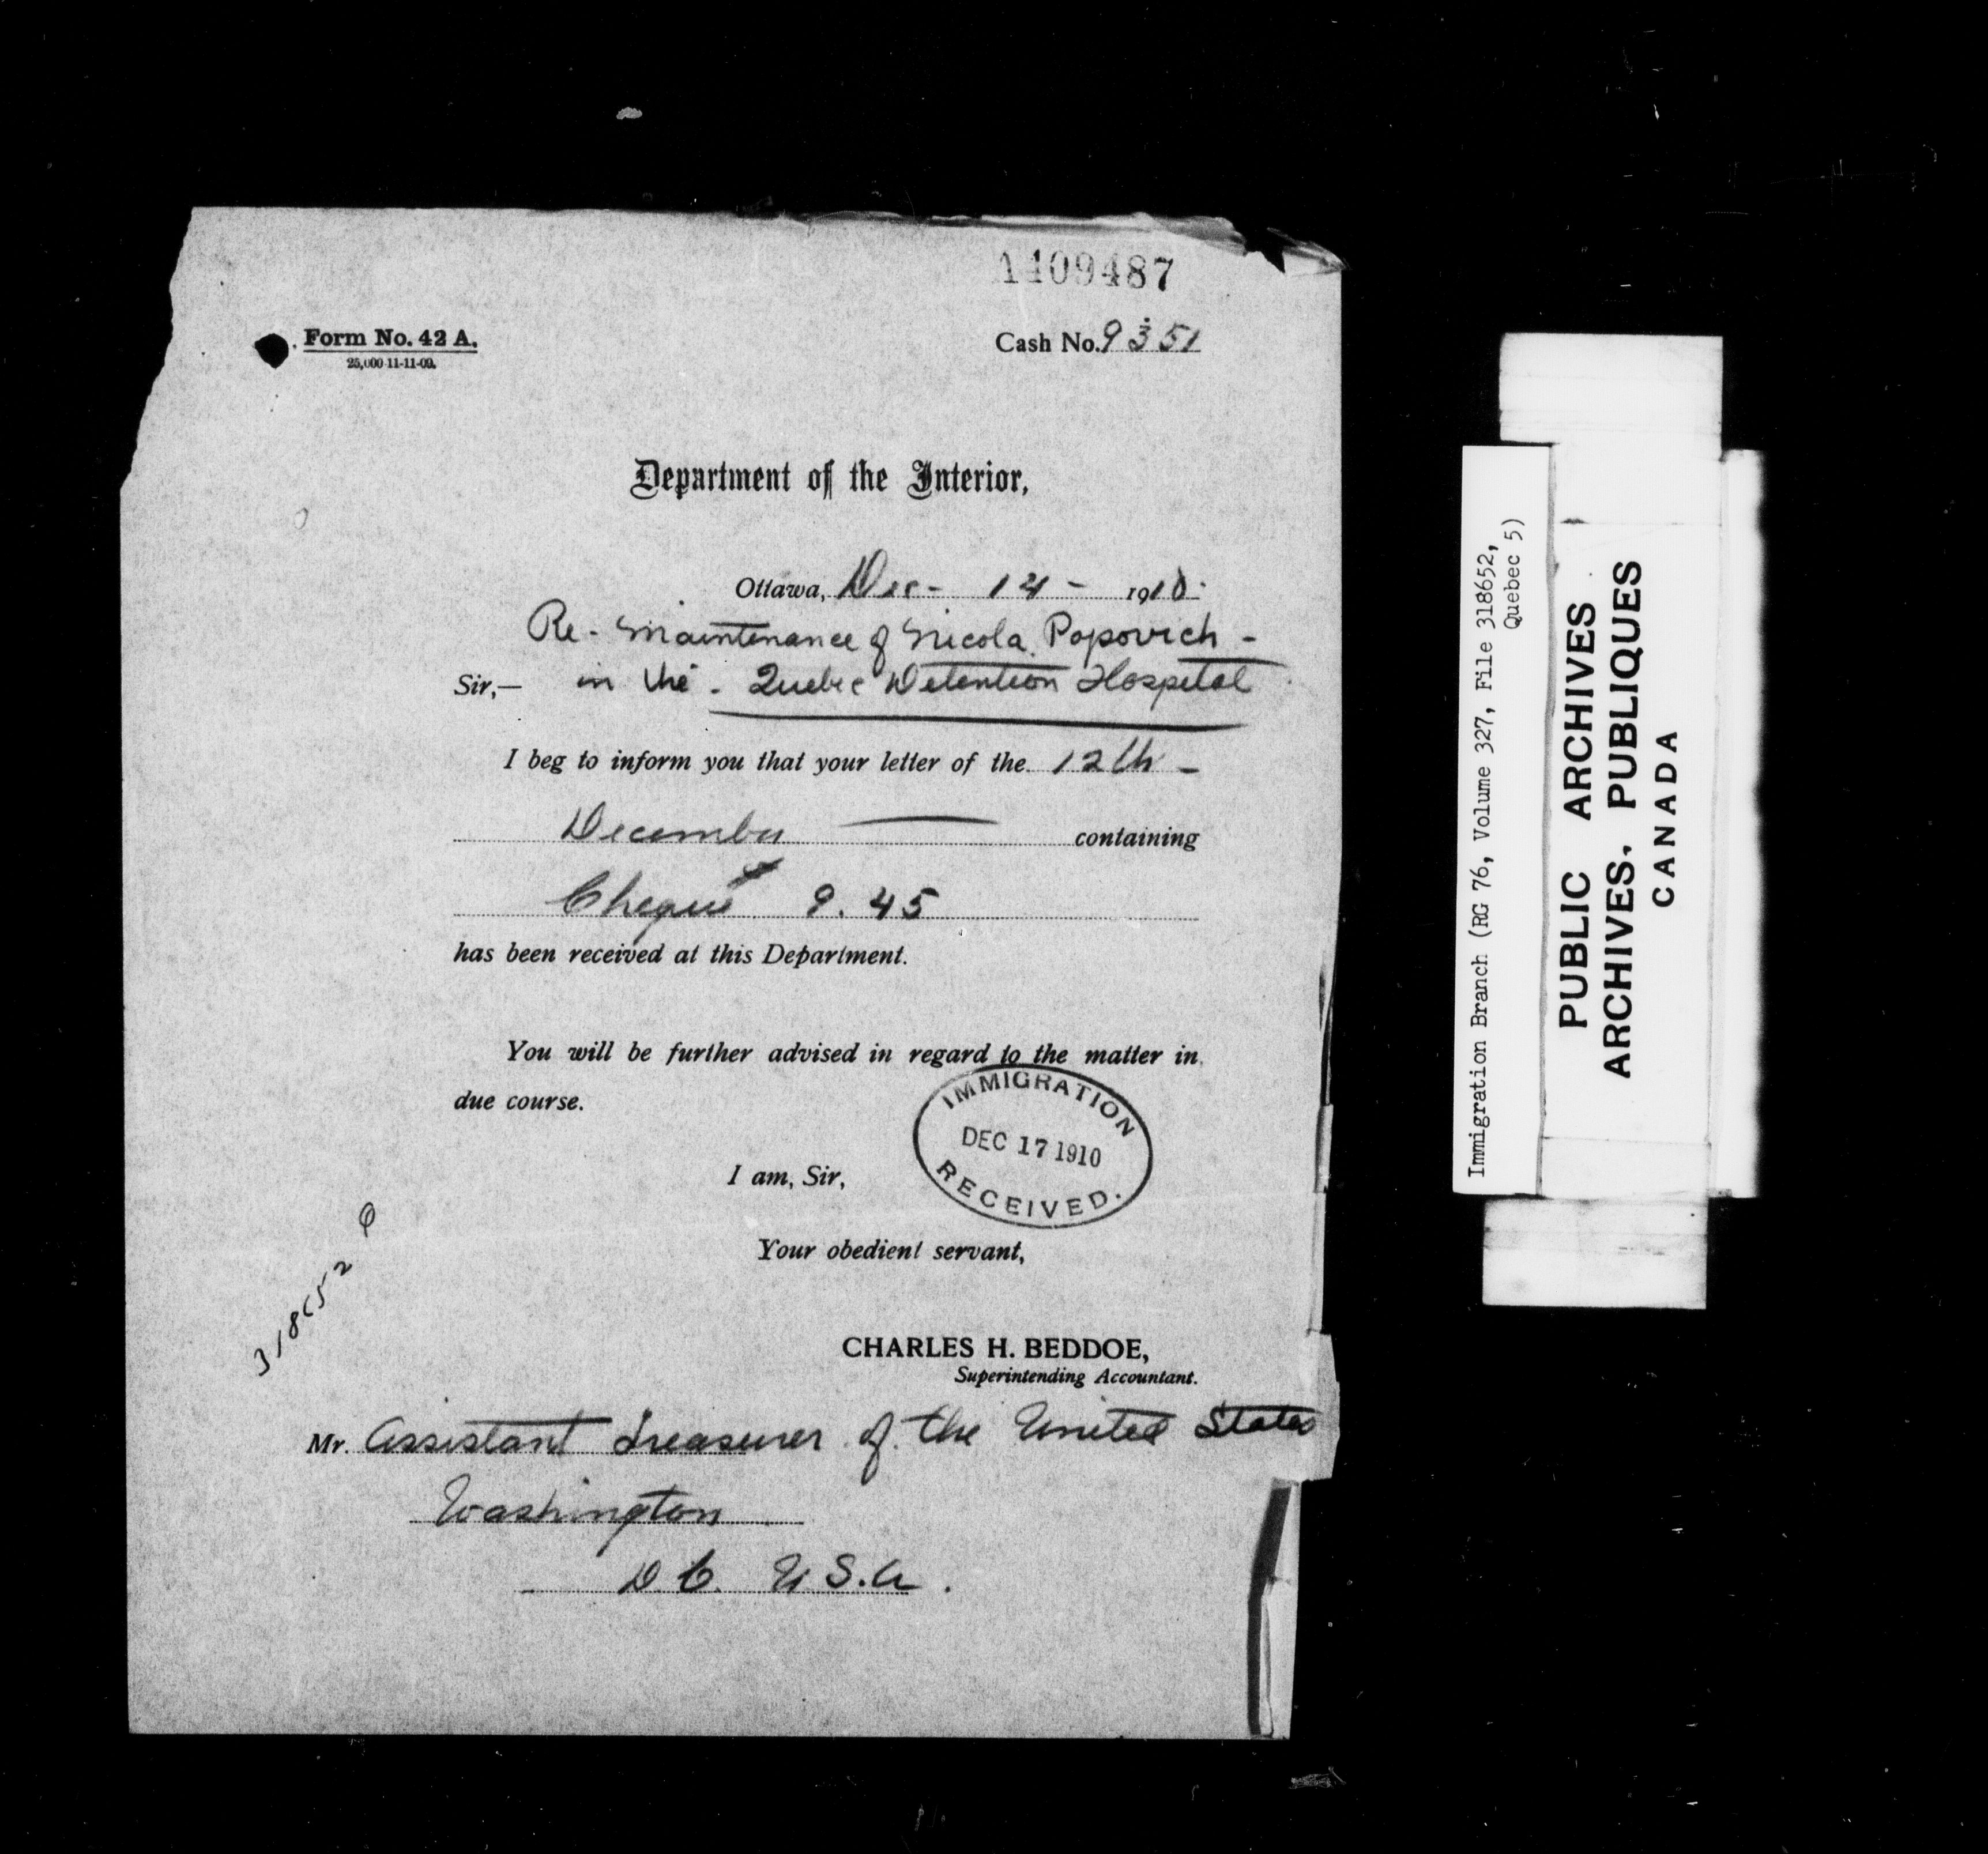 1409487
Form No. 42 A.
25,000-11-11-09.
Cash No. 9351
Department of the Interior,
Ottawa, Dec - 14 - 1910.
Re - Maintenance of Nicola Popovich -
Sir,— in the - Quebec Detention Hospital
I beg to inform you that your letter of the 12th -
December containing
Cheque 9.45
has been received at this Department.
You will be further advised in regard to the matter in
due course.
IMMIGRATION
DEC 17 1910
RECEIVED.
I am, Sir,
Your obedient servant,
318652
CHARLES H. BEDDOE,
Superintending Accountant.
Mr. Assistant Treasurer of the United States
Washington
D.C. U.S.A.
Immigration Branch (RG 76, Volume 327, File 318652,
Quebec 5)
PUBLIC ARCHIVES
ARCHIVES. PUBLIQUES
CANADA